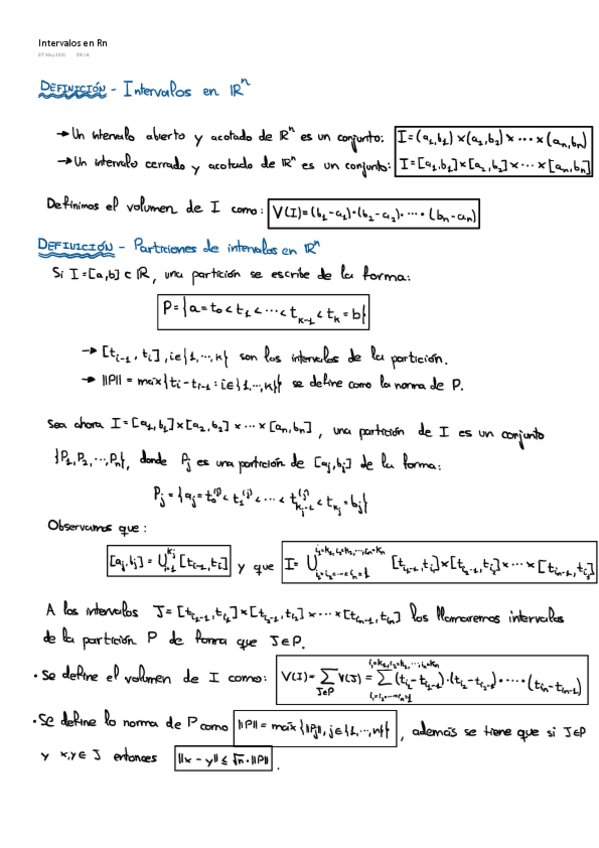 Intervalos en Rn
DEFINICIÓN - Intervalos en ℝⁿ
→ Un intervalo abierto y acotado de ℝⁿ es un conjunto: I=(a₁,b₁)×(a₂,b₂)×⋯×(aₙ,bₙ)
→ Un intervalo cerrado y acotado de ℝⁿ es un conjunto: I=[a₁,b₁]×[a₂,b₂]×⋯×[aₙ,bₙ]
Definimos el volumen de I como: V(I)=(b₁-a₁)·(b₂-a₂)·⋯·(bₙ-aₙ)
DEFINICIÓN - Particiones de intervalos en ℝⁿ
Si I=[a,b]⊂ℝ, una partición se escribe de la forma:
P={a=t₀<t₁<⋯<t_{k-1}<t_k=b}
→ [t_{i-1}, t_i], i∈{1,⋯,k} son los intervalos de la partición.
→ ‖P‖ = máx{t_i-t_{i-1}: i∈{1,⋯,k}} se define como la norma de P.
Sea ahora I=[a₁,b₁]×[a₂,b₂]×⋯×[aₙ,bₙ], una partición de I es un conjunto
{P₁,P₂,⋯,Pₙ}, donde P_j es una partición de [a_j,b_j] de la forma:
P_j={a_j=t₀^{(j)}<t₁^{(j)}<⋯<t_{k_j-1}^{(j)}<t_{k_j}=b_j}
Observamos que:
[a_j,b_j]=⋃_{i=1}^{k_j}[t_{i-1},t_i] y que I=⋃_{i₁=i₂=⋯=iₙ=1}^{i₁=k₁,i₂=k₂,⋯,iₙ=kₙ}[t_{i₁-1},t_{i₁}]×[t_{i₂-1},t_{i₂}]×⋯×[t_{iₙ-1},t_{iₙ}]
A los intervalos J=[t_{i₁-1},t_{i₁}]×[t_{i₂-1},t_{i₂}]×⋯×[t_{iₙ-1},t_{iₙ}] los llamaremos intervalos
de la partición P de forma que J∈P.
· Se define el volumen de I como: V(I)=∑_{J∈P}V(J)=∑_{i₁=i₂=⋯=iₙ=1}^{i₁=k₁,i₂=k₂,⋯,iₙ=kₙ}(t_{i₁}-t_{i₁-1})·(t_{i₂}-t_{i₂-1})·⋯·(t_{iₙ}-t_{iₙ-1})
· Se define la norma de P como ‖P‖=máx{‖P_j‖, j∈{1,⋯,n}}, además se tiene que si J∈P
y x,y∈J entonces ‖x-y‖≤√n·‖P‖.